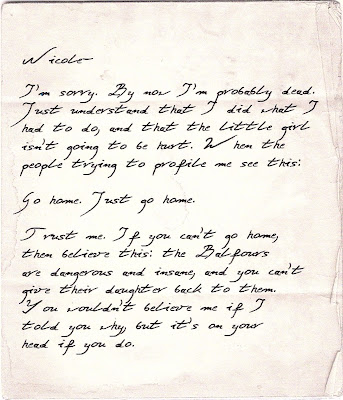 Nicole
I'm sorry. By now I'm probably dead.
Just understand that I did what I
had to do, and that the little girl
isn't going to be hurt. When the
people trying to profile me see this:
Go home. Just go home.
Trust me. If you can't go home,
then believe this: the Balfours
are dangerous and insane, and you can't
give their daughter back to them.
You wouldn't believe me if I
told you why, but it's on your
head if you do.